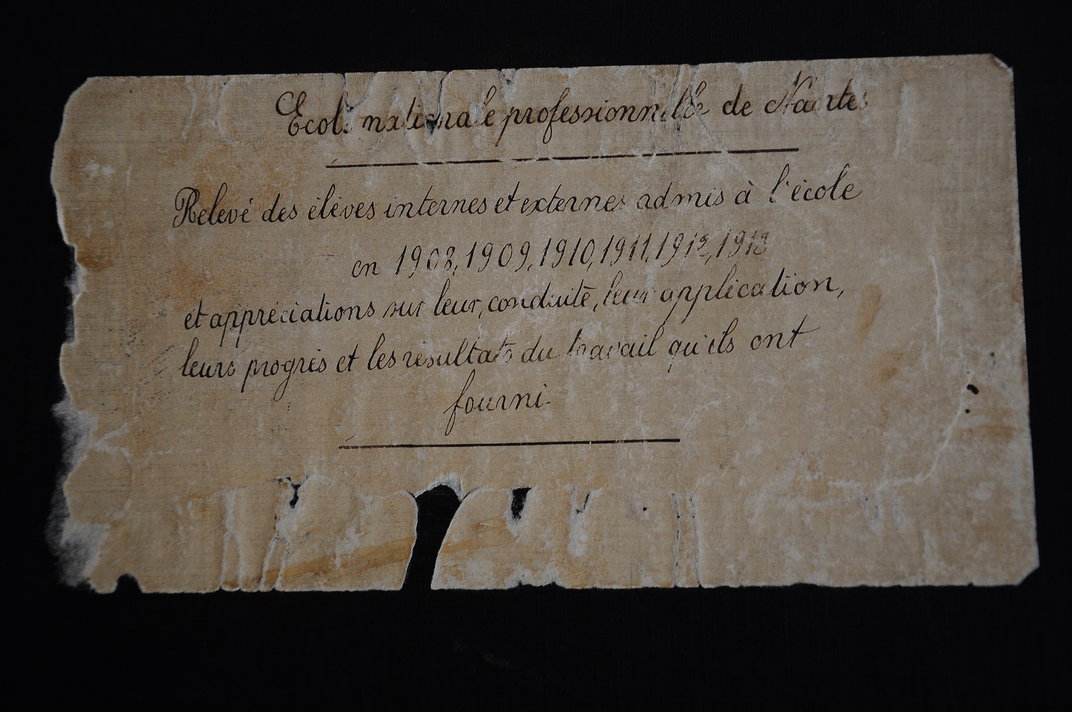 Ecole nationale professionnelle de Nantes
Relevé des élèves internes et externes admis à l'école
en 1908, 1909, 1910, 1911, 1912, 1913
et appréciations sur leur conduite, leur application,
leurs progrès et les résultats du travail qu'ils ont
fourni.